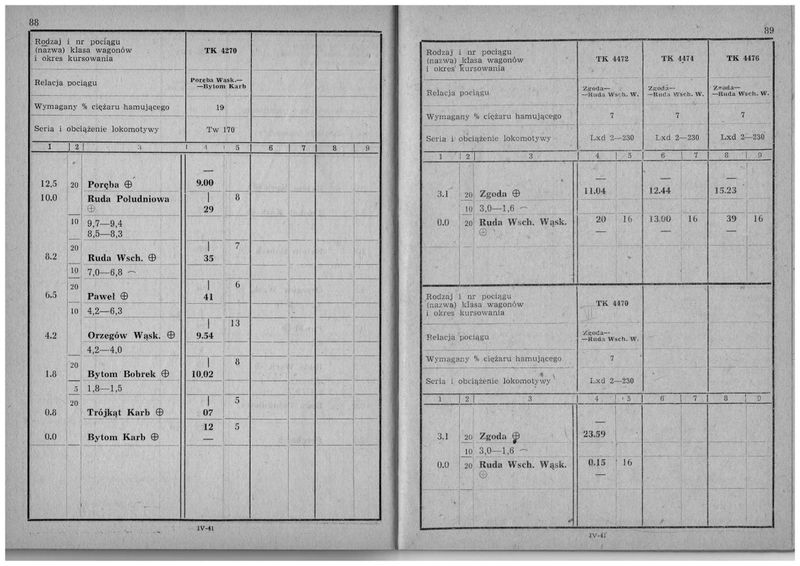 88
Rodzaj i nr pociągu
(nazwa) klasa wagonów
i okres kursowania
TK 4270
Relacja pociągu
Poręba Wąsk.—
—Bytom Karb
Wymagany % ciężaru hamującego 19
Seria i obciążenie lokomotywy Tw 170
1 2 3 4 5 6 7 8 9
—
12,5 20 Poręba ⊕ 9.00
10.0 Ruda Południowa | 8
⊕ 29
10 9,7—9,4
8,5—8,3
20 | 7
8.2 Ruda Wsch. ⊕ 35
10 7,0—6,8
20 | 6
6.5 Paweł ⊕ 41
10 4,2—6,3
| 13
4.2 Orzegów Wąsk. ⊕ 9.54
4,2—4,0
20 | 8
1.8 Bytom Bobrek ⊕ 10.02
5 1,8—1,5
20 | 5
0.8 Trójkąt Karb ⊕ 07
12 5
0.0 Bytom Karb ⊕ —
IV-41
89
Rodzaj i nr pociągu
(nazwa) klasa wagonów
i okres kursowania
TK 4472 TK 4474 TK 4476
Relacja pociągu
Zgoda— Zgoda— Zgoda—
—Ruda Wsch. W. —Ruda Wsch. W. —Ruda Wsch. W.
Wymagany % ciężaru hamującego 7 7 7
Seria i obciążenie lokomotywy Lxd 2—230 Lxd 2—230 Lxd 2—230
1 2 3 4 5 6 7 8 9
— — —
3.1 20 Zgoda ⊕ 11.04 12.44 15.23
10 3,0—1,6
0.0 20 Ruda Wsch. Wąsk. 20 16 13.00 16 39 16
⊕ — — —
Rodzaj i nr pociągu
(nazwa) klasa wagonów
i okres kursowania
TK 4470
Relacja pociągu
Zgoda—
—Ruda Wsch. W.
Wymagany % ciężaru hamującego 7
Seria i obciążenie lokomotywy Lxd 2—230
1 2 3 4 5 6 7 8 9
—
3.1 20 Zgoda ⊕ 23.59
10 3,0—1,6
0.0 20 Ruda Wsch. Wąsk. 0.15 16
⊕ —
IV-41